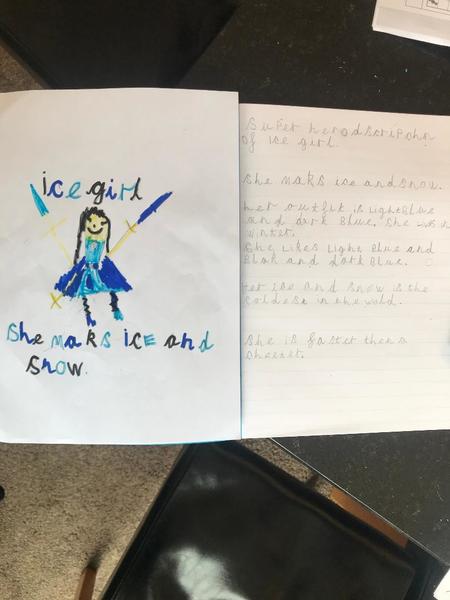 ice girl
She maks ice and
snow.
Super hero dscripchn
of ice girl.
she maks ice and snow.
her outfit is Light Blue
and dark Blue. She in
winter.
She likes Light Blue and
Blak and dark Blue.
Her ice and snow is the
coldest in the world.
She is faster then a